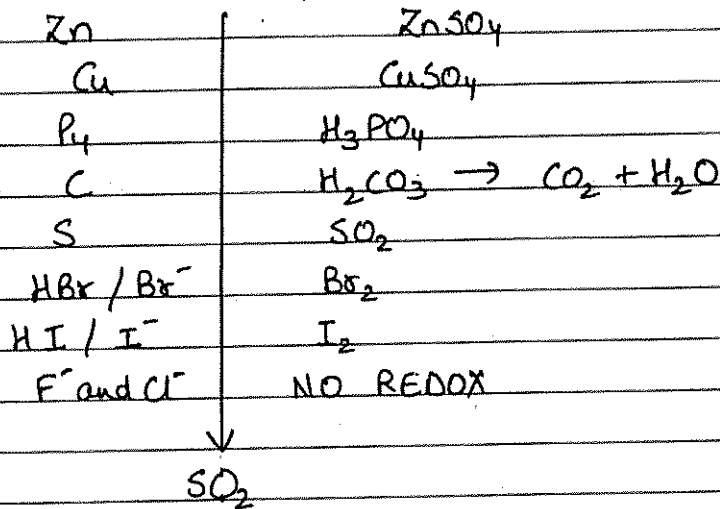 Zn ZnSO₄
Cu CuSO₄
P₄ H₃PO₄
C H₂CO₃ → CO₂ + H₂O
S SO₂
HBr / Br⁻ Br₂
HI / I⁻ I₂
F⁻ and Cl⁻ NO REDOX
SO₂